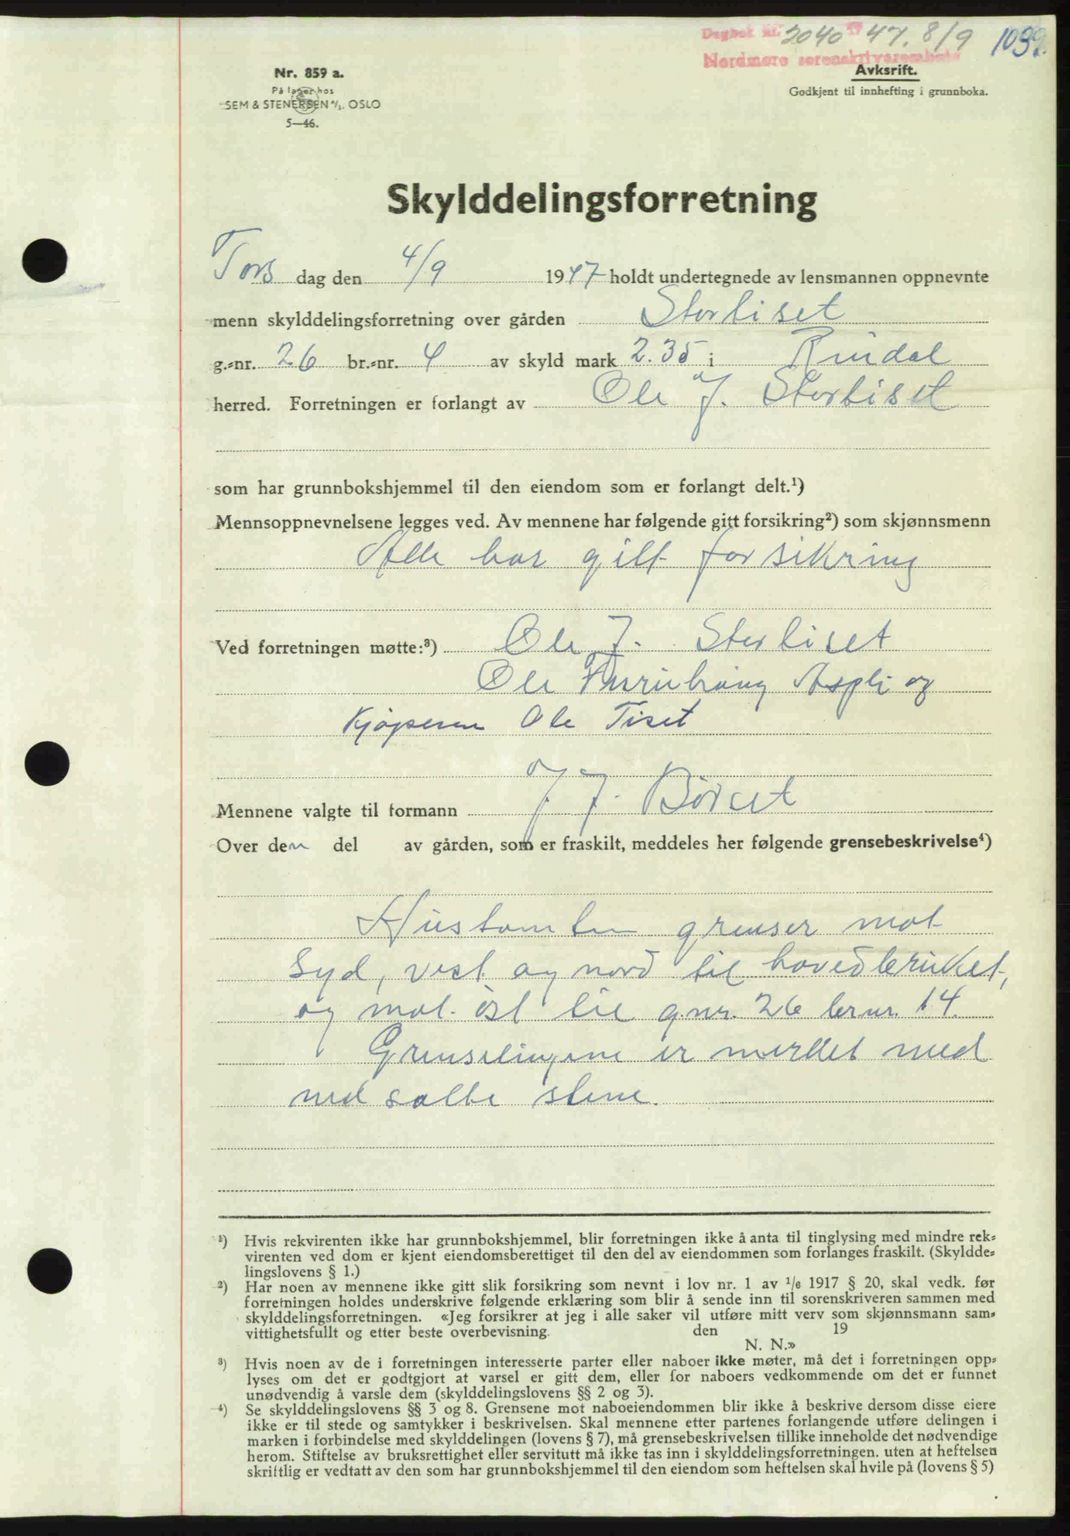 Dagbok nr. 2040 19 47. 8/9 1039.
Nordmøre sorenskriverembete
Nr. 859 a.
På lager hos
SEM & STENERSEN A/S. OSLO
5—46.
Avksrift.
Godkjent til innhefting i grunnboka.
Skylddelingsforretning
Tors dag den 4/9 1947 holdt undertegnede av lensmannen oppnevnte
menn skylddelingsforretning over gården Storliset
g.-nr. 26 br.-nr. 4 av skyld mark 2.35 i Rindal
herred. Forretningen er forlangt av Ole J. Storliset
som har grunnbokshjemmel til den eiendom som er forlangt delt.¹)
Mennsoppnevnelsene legges ved. Av mennene har følgende gitt forsikring²) som skjønnsmenn
Alle har gitt forsikring
Ved forretningen møtte:³) Ole J. Storliset
Ole Furuhaug Aspli og
Kjøperen Ole Tiset
Mennene valgte til formann J. J. Børset
Over den del av gården, som er fraskilt, meddeles her følgende grensebeskrivelse⁴)
Hustomten grenser mot
syd, vest og nord til hovedbruket,
og mot øst til gnr. 26 brnr. 14.
Grenselinjene er merket med
nedsatte stene.
¹) Hvis rekvirenten ikke har grunnbokshjemmel, blir forretningen ikke å anta til tinglysing med mindre rek-
virenten ved dom er kjent eiendomsberettiget til den del av eiendommen som forlanges fraskilt. (Skyldde-
lingslovens § 1.)
²) Har noen av mennene ikke gitt slik forsikring som nevnt i lov nr. 1 av 1/6 1917 § 20, skal vedk. før
forretningen holdes underskrive følgende erklæring som blir å sende inn til sorenskriveren sammen med
skylddelingsforretningen. «Jeg forsikrer at jeg i alle saker vil utføre mitt verv som skjønnsmann sam-
vittighetsfullt og etter beste overbevisning. den 19
N. N.»
³) Hvis noen av de i forretningen interesserte parter eller naboer ikke møter, må det i forretningen opp-
lyses om det er godtgjort at varsel er gitt dem, eller for naboers vedkommende om det er funnet
unødvendig å varsle dem (skylddelingslovens §§ 2 og 3).
⁴) Se skylddelingslovens §§ 3 og 8. Grensene mot naboeiendommen blir ikke å beskrive dersom disse eiere
ikke er til stede og samtykker i beskrivelsen. Skal mennene etter partenes forlangende utføre delingen i
marken i forbindelse med skylddelingen (lovens § 7), må grensebeskrivelsen tillike inneholde det nødvendige
herom. Stiftelse av bruksrettighet eller servitutt må ikke tas inn i skylddelingsforretningen, uten at heftelsen
skriftlig er vedtatt av den som har grunnbokshjemmel til den eiendom som heftelsen skal hvile på (lovens § 5)